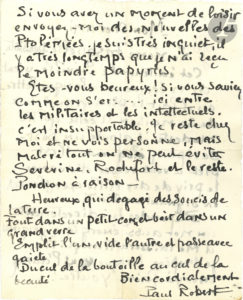 Si vous avez un moment de loisir
envoyez-moi des nouvelles des
Ptolémées. je suis très inquiet, il
y a très longtemps que je n'ai reçu
le moindre papyrus.
Êtes-vous heureux! Si vous saviez
comme on s'er.... ici entre
les militaires et les intellectuels.
c'est insupportable. Je reste chez
moi et ne vois personne, mais
malgré tout on ne peut éviter
Séverine, Rochefort et le reste.
Jondion a raison—
Heureux qui dégagé des soucis de
la terre.
Fout dans un petit con, et boit dans un
grand verre
Emplit l'un, vide l'autre et passe avec
gaieté
Du cul de la bouteille au cul de la
beauté
Bien cordialement
Paul Robert